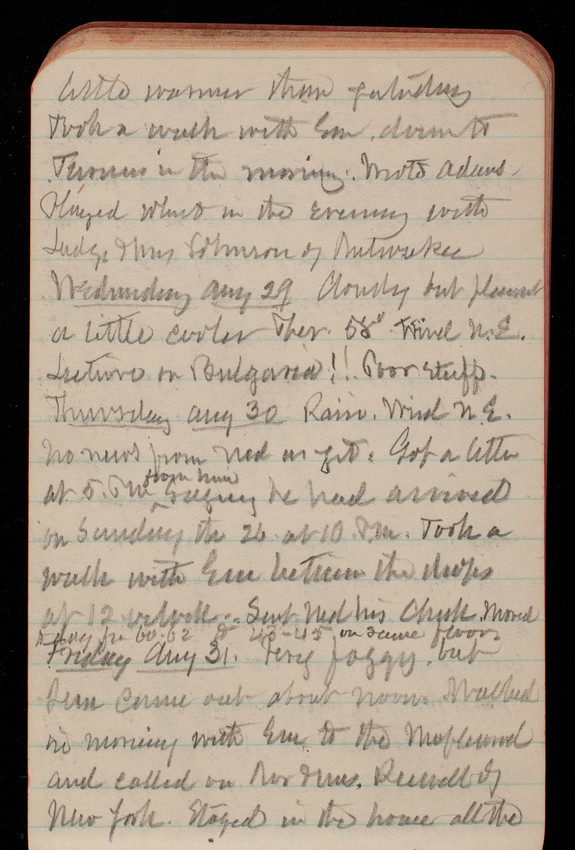 little warmer than yesterday
Took a walk with Em. down to
Tennis in the morning. Mrs Adams.
Played Whist in the evening with
Judge & Mrs Johnson of Milwaukee
Wednesday Aug 29 Cloudy but pleasant
a little cooler Ther 58° Wind N.E.
Lecture on Bulgaria!! Poor stuff.
Thursday Aug 30 Rain. Wind N.E.
No news from Ned as yet. Got a letter
from him
at 5. P.M. saying he had arrived
on Sunday the 26 at 10 P.M. Took a
walk with Em between the drops
at 12 o'clock. Sent Ned his Check. Moved
fr 60.62 to 43-45 on same floor.
Friday Aug 31. Very foggy. but
Sun came out about noon. Walked
in morning with Em. to the Maplewood
and called on & Mrs. of
New York. Stayed in the house all the